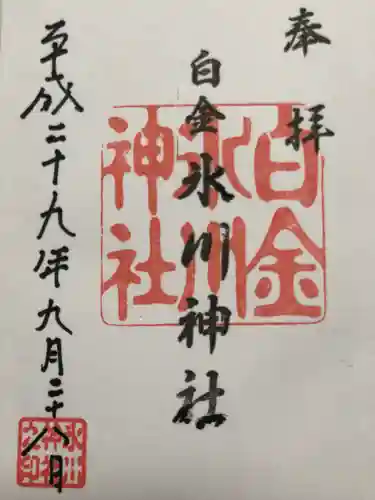 奉拝
白金氷川神社
白金氷川神社
平成二十九年九月二十八日